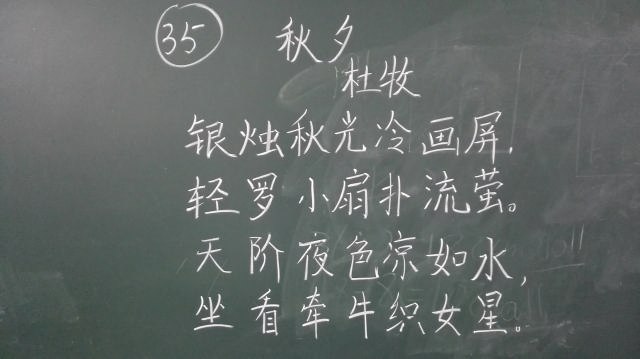 35 秋夕
杜牧
银烛秋光冷画屏,
轻罗小扇扑流萤。
天阶夜色凉如水,
坐看牵牛织女星。